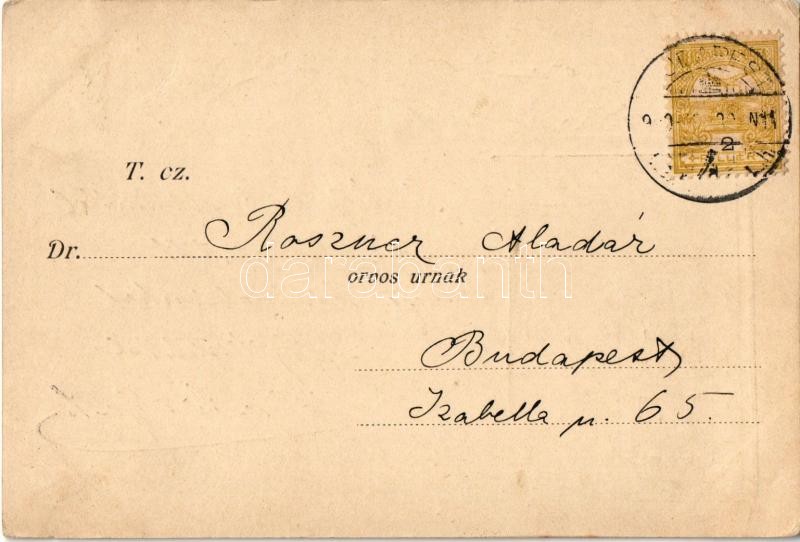 T. cz.
Dr. Roszner Aladár
orvos urnak
darabanth
Budapest,
Izabella u. 65.
2